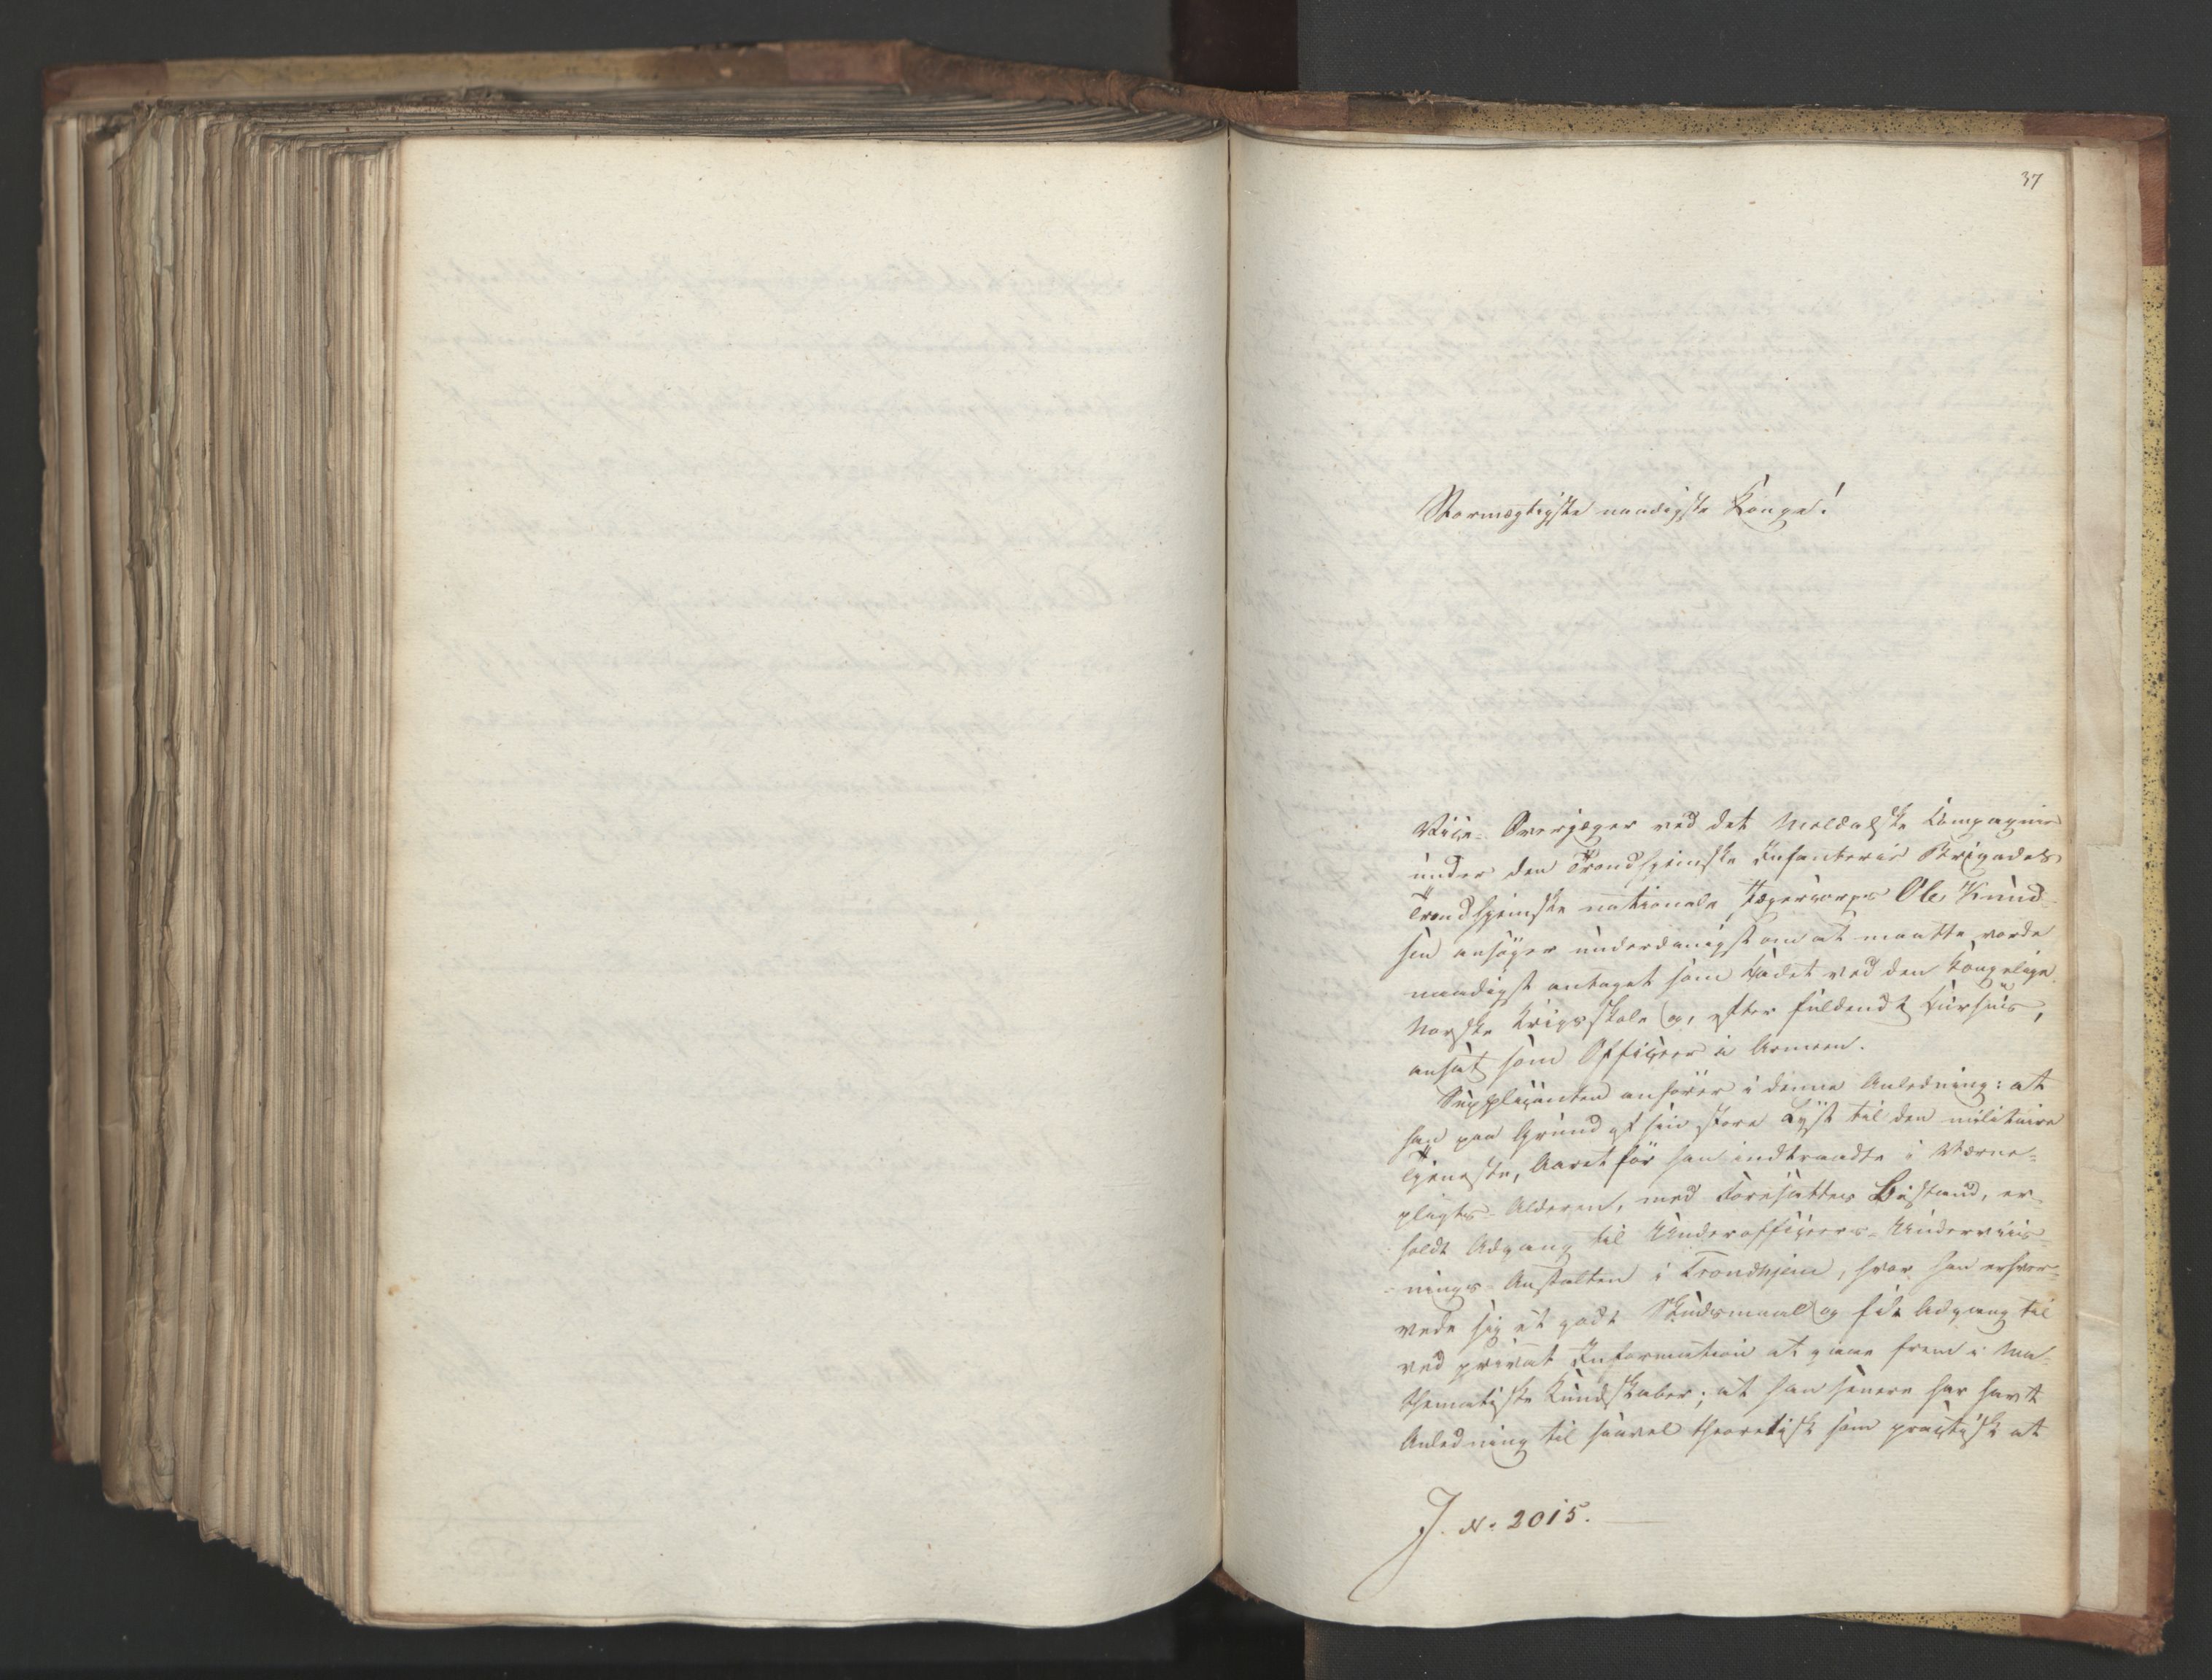 37
Stormægtigste naadigste Konge!
Vice-Overjæger ved det Meldalske Compagnie
under den Trondhjemske Infanterie Brigades
Trondhjemske nationale Jægercorps Ole Knud-
sen ansøger underdanigst om at maatte vorde
naadigst antaget som Kadet ved den Kongelige
Norske Krigsskole og, efter fuldendt Kursus,
ansat som Officeer i Armeen.
Supplicanten anfører i denne Anledning: at
han paa Grund af sin store Lyst til den militaire
Tjeneste, Aaret før han indtraadte i Værne-
pligts-Alderen, med Foresattes Bistand, er-
holdt Adgang til Underofficeers-Underviis-
nings-Anstalten i Trondhjem, hvor han erhver-
vede sig et godt Skudsmaal og fik Adgang til
ved privat Information at gaae frem i Ma-
thematiske Kundskaber; at han senere har havt
Anledning til saavel theoretisk som practisk at
J. N. 2015.